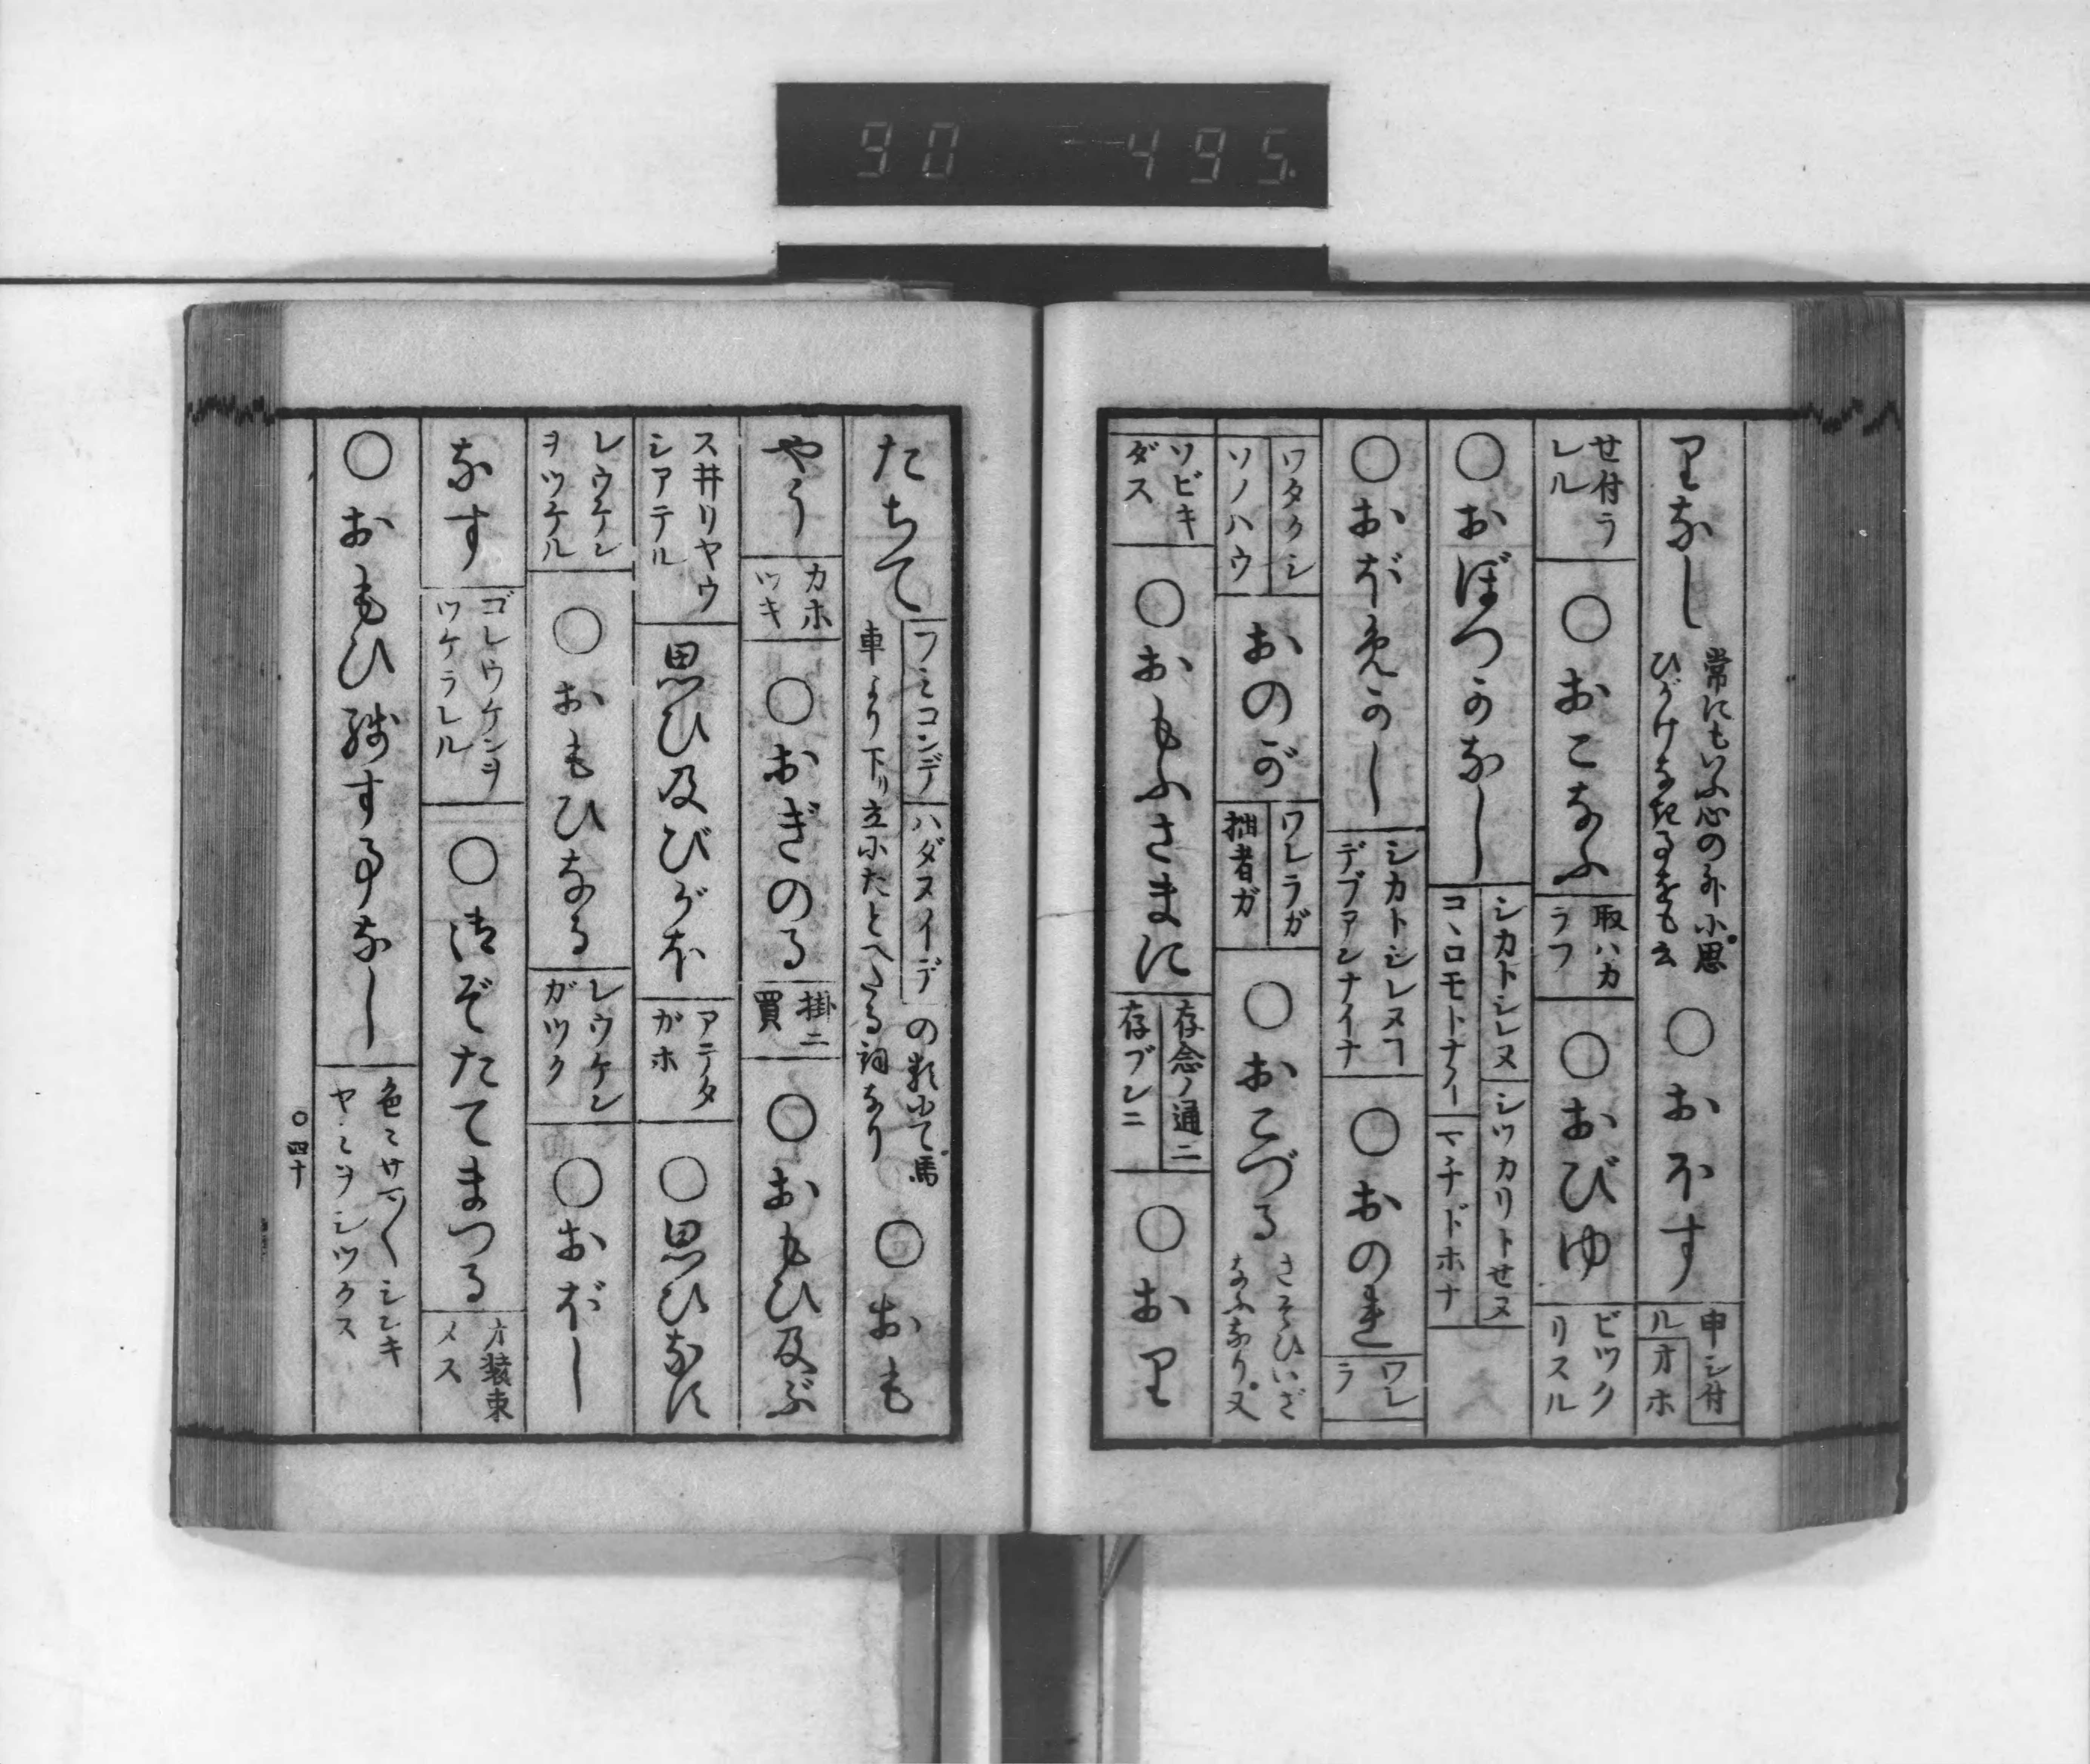 90 495
里なし 常にもいふ心の外に思ひがけなき事をも云 ○おほす 申シ付ル オホ
せ付ラレル ○おこなふ 取ハカラフ ○おびゆ ビツクリスル
○おぼつかなし シカトシレヌ コヽロモトナイ シツカリトせヌ マチドホナ
○おぼめかし シカトシレヌコ デブアンナイナ ○おのれ ワレラ
ワタクシ ソノハウ おのが ワレラガ 拙者ガ ○おこづる さそひいざなふなり又
ソビキダス ○おもふさまに 存念ノ通ニ 存ブンニ ○おり
たちて フミコンデ ハダヌイデ の類にて馬車より下り立にたとへたる詞なり ○おも
やう カホツキ ○おぎのる 掛ニ買 ○おもひ及ぶ
ス井リヤウシアテル 思ひ及びがほ アテタガホ ○思ひなに
レウケンヲツケル ○おもひなる レウケンガツク ○おぼし
なす ゴレウケンヲツケラレル ○御ぞたてまつる オ装束メス
○おもひ残す事なし 色〻サマ〴〵シンキヤミヲシツクス
○四十